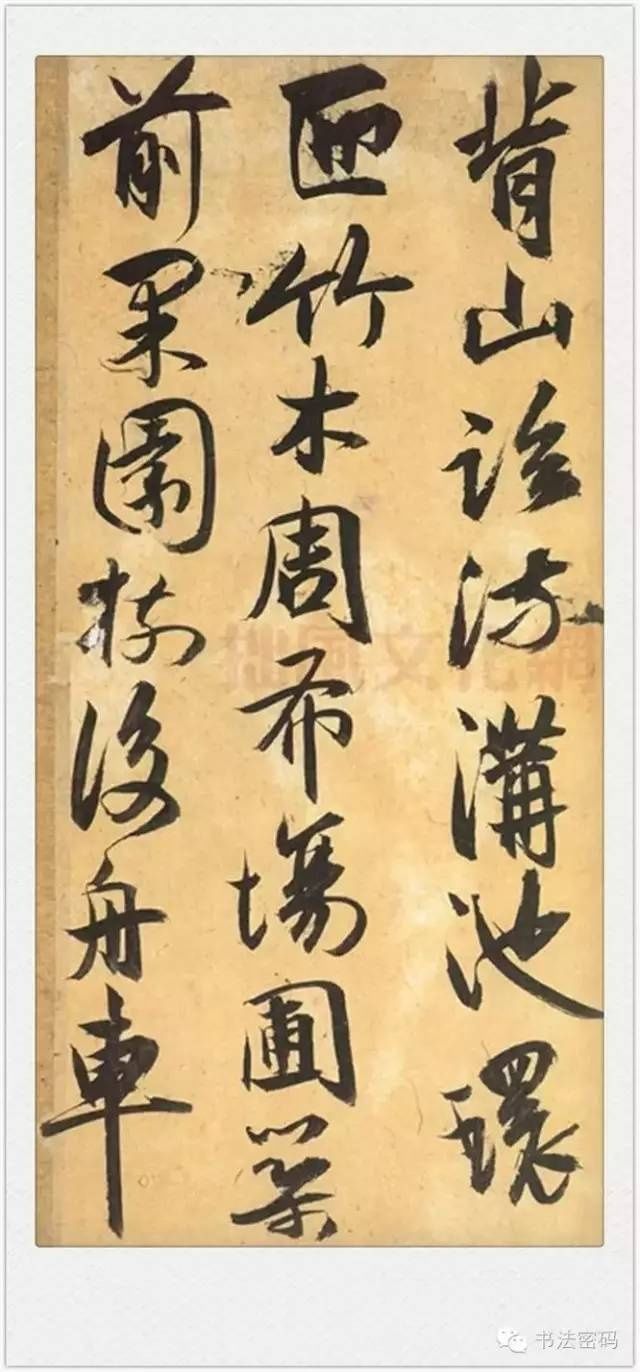 背山臨流溝池環
匝竹木周布場圃築
前果園樹後舟車
拙風文化網
书法密码